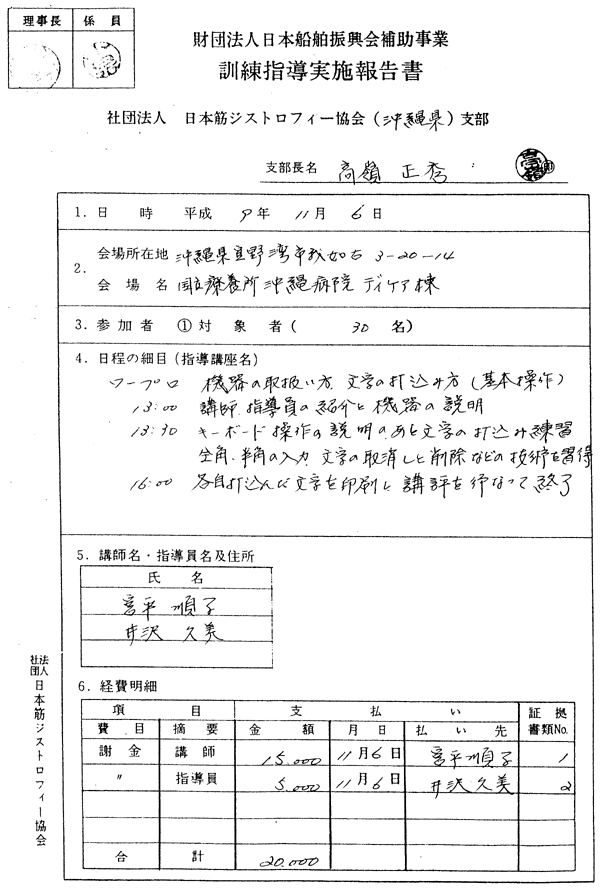 理事長 係員
財団法人日本船舶振興会補助事業
訓練指導実施報告書
社団法人 日本筋ジストロフィー協会(沖縄県)支部
支部長名 高嶺 正秀
1. 日 時 平成 9年 11月 6日
2. 会場所在地 沖縄県宜野湾市我如古 3-20-14
会場名 国立療養所沖縄病院 デイケア棟
3. 参加者 ①対象者( 30名)
4. 日程の細目(指導講座名)
ワープロ 機器の取扱い方、文字の打込み方(基本操作)
13:00 講師、指導員の紹介と機器の説明
13:30 キーボード操作の説明のあと文字の打込み練習
全角、半角の入力、文字の取消しと削除などの技術を習得
16:00 各自打込んだ文字を印刷し講評を行なって終了
5. 講師名・指導員名及住所
氏 名
宮平 順子
井沢 久美
6. 経費明細
項 目 支 払 い 証拠書類No.
費目 摘要 金額 月日 払い先
謝金 講師 15,000 11月6日 宮平順子 1
〃 指導員 5,000 11月6日 井沢久美 2
合 計 20,000
社団法人 日本筋ジストロフィー協会